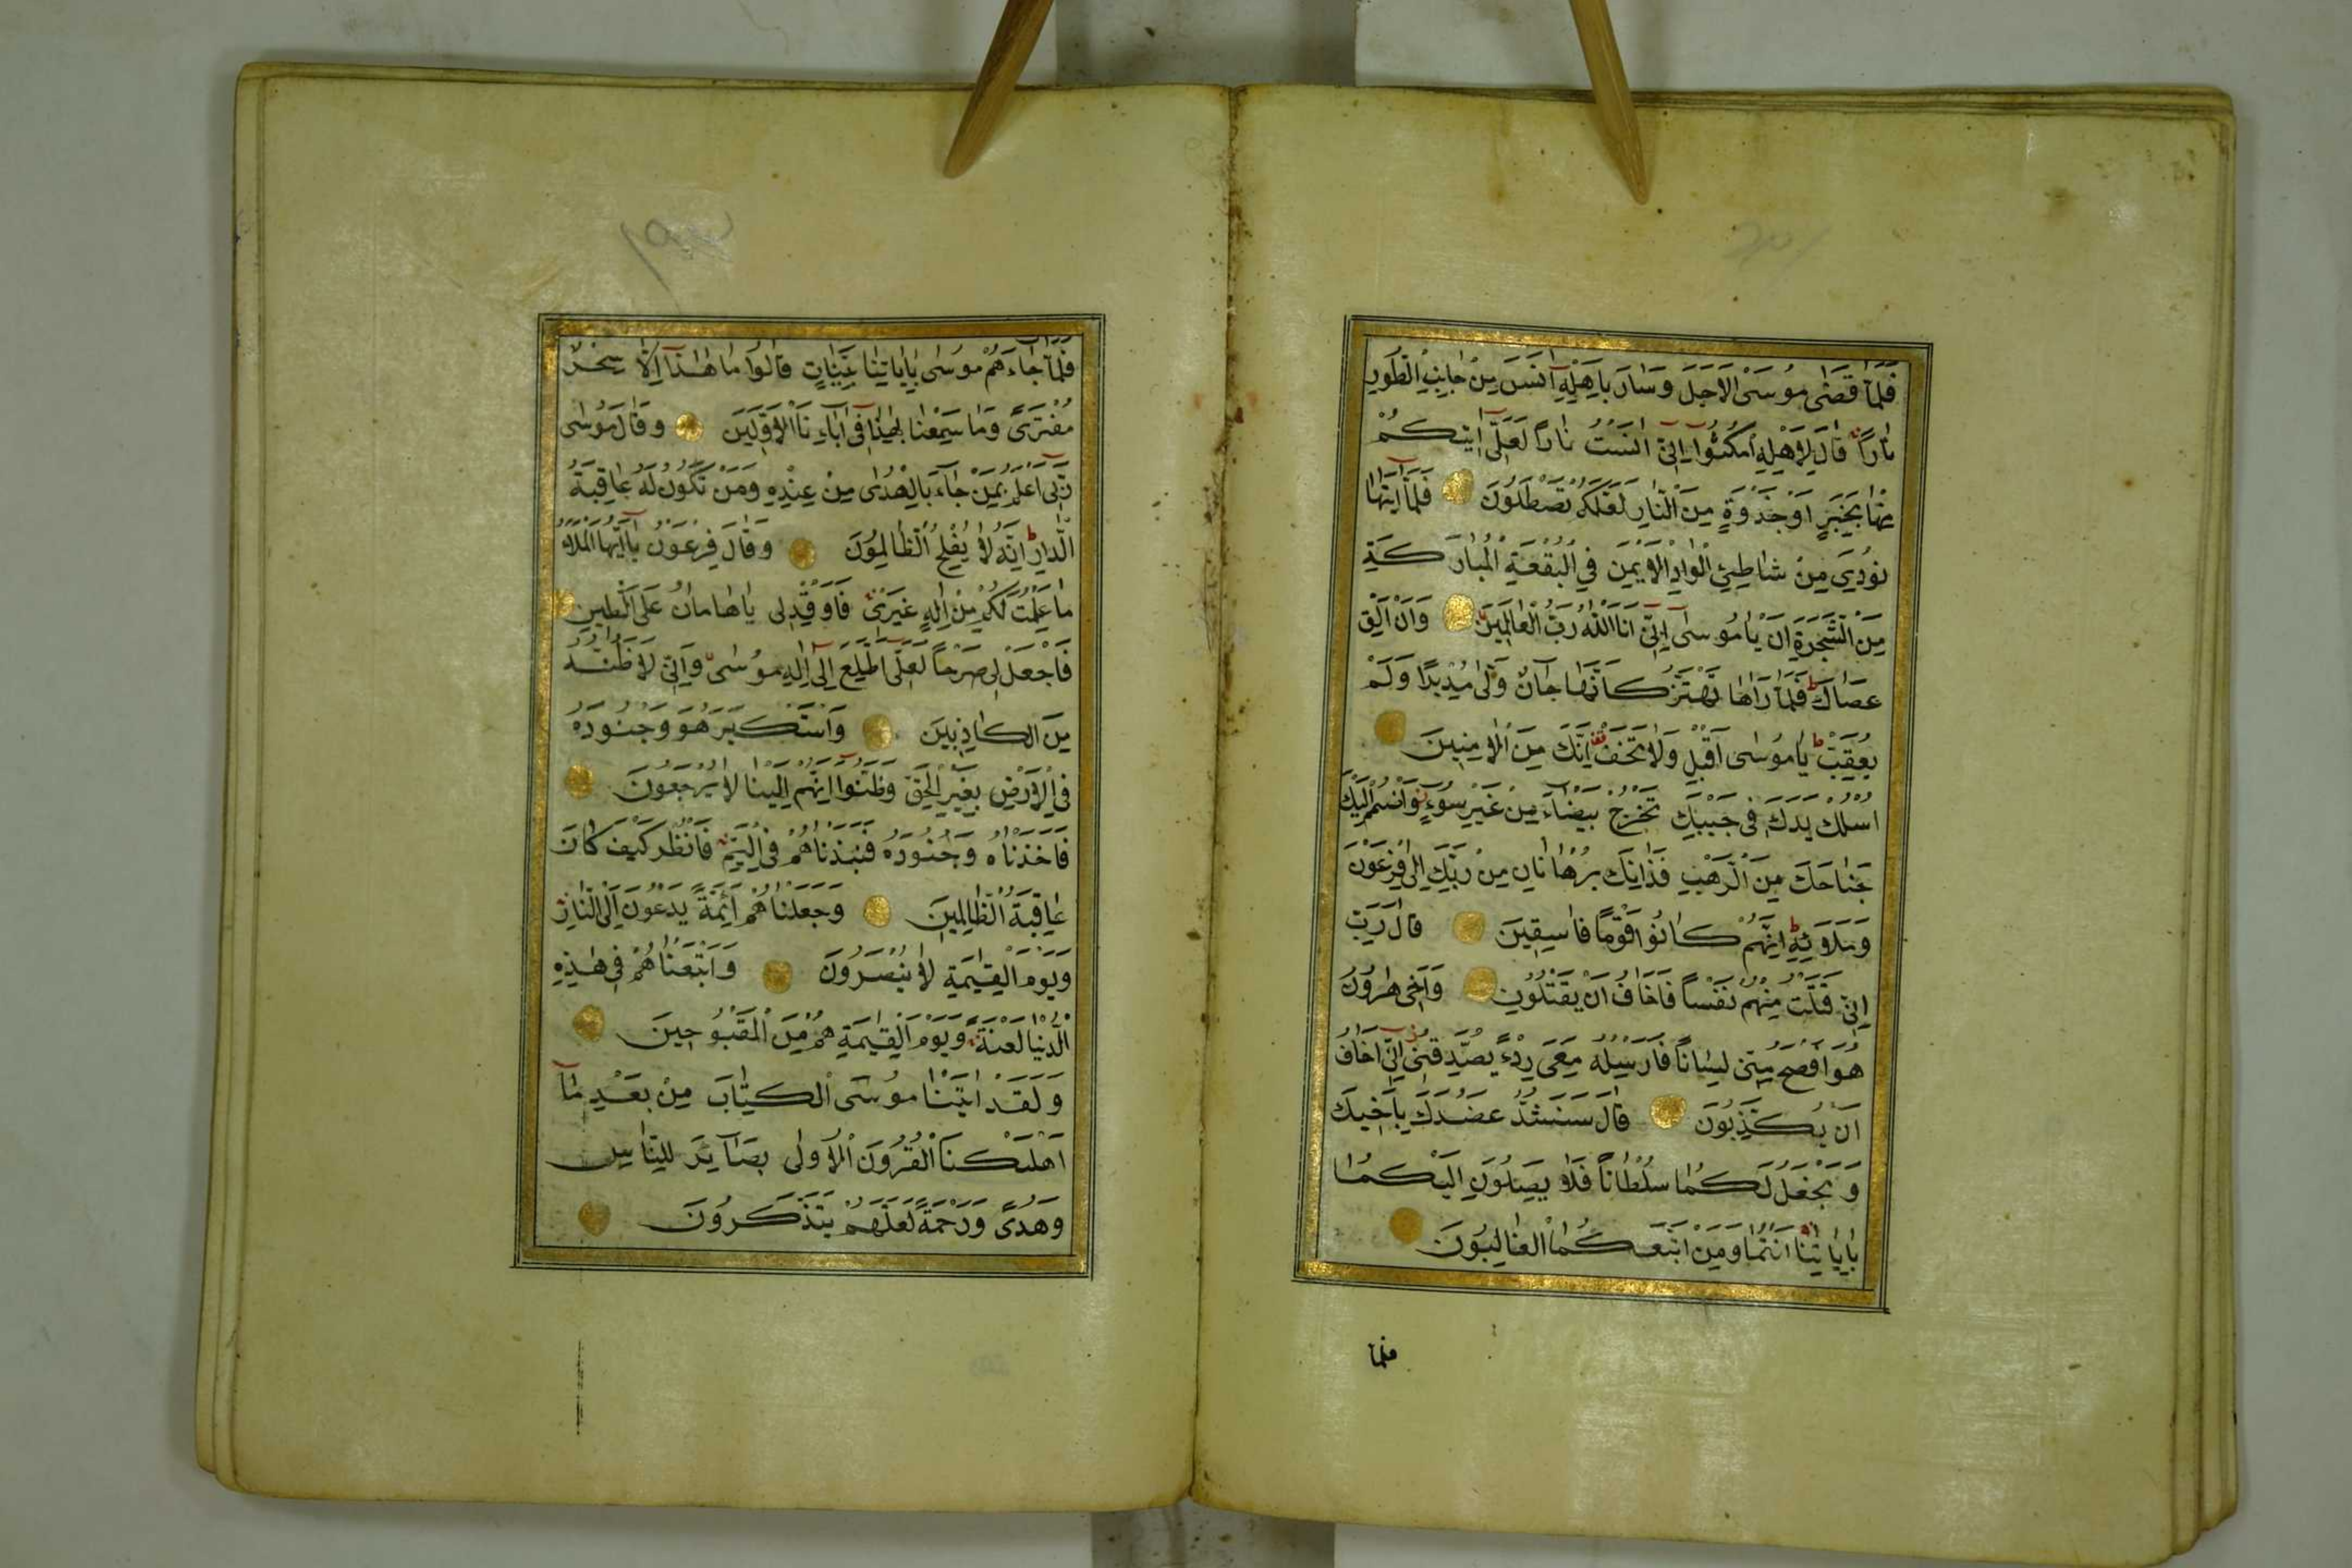 فَلَمَّا قَضٰى مُوسَى الْاَجَلَ وَسَارَ بِاَهْلِهٖٓ اٰنَسَ مِنْ جَانِبِ الطُّورِ
نَارًا قَالَ لِاَهْلِهِ امْكُثُٓوا اِنّٓى اٰنَسْتُ نَارًا لَعَلّٓى اٰتٖيكُمْ
مِنْهَا بِخَبَرٍ اَوْ جَذْوَةٍ مِنَ النَّارِ لَعَلَّكُمْ تَصْطَلُونَ فَلَمَّٓا اَتٰيهَا
نُودِىَ مِنْ شَاطِئِ الْوَادِ الْاَيْمَنِ فِى الْبُقْعَةِ الْمُبَارَكَةِ
مِنَ الشَّجَرَةِ اَنْ يَا مُوسٰٓى اِنّٓى اَنَا اللّٰهُ رَبُّ الْعَالَمينَ وَاَنْ اَلْقِ
عَصَاكَ فَلَمَّا رَاٰهَا تَهْتَزُّ كَاَنَّهَا جَٓانٌّ وَلّٰى مُدْبِرًا وَلَمْ
يُعَقِّبْ يَا مُوسٰٓى اَقْبِلْ وَلَا تَخَفْ قف اِنَّكَ مِنَ الْاٰمِنينَ
اُسْلُكْ يَدَكَ فى جَيْبِكَ تَخْرُجْ بَيْضَٓاءَ مِنْ غَيْرِ سُٓوءٍ وَاضْمُمْ اِلَيْكَ
جَنَاحَكَ مِنَ الرَّهْبِ فَذَانِكَ بُرْهَانَانِ مِنْ رَبِّكَ اِلٰى فِرْعَوْنَ
وَمَلَائِهٖ اِنَّهُمْ كَانُوا قَوْمًا فَاسِقينَ قَالَ رَبِّ
اِنّى قَتَلْتُ مِنْهُمْ نَفْسًا فَاَخَافُ اَنْ يَقْتُلُونِ وَاَخى هٰرُونُ
هُوَ اَفْصَحُ مِنّى لِسَانًا فَاَرْسِلْهُ مَعِىَ رِدْءً يُصَدِّقُنى اِنّٓى اَخَافُ
اَنْ يُكَذِّبُونِ قَالَ سَنَشُدُّ عَضُدَكَ بِاَخيكَ
وَنَجْعَلُ لَكُمَا سُلْطَانًا فَلَا يَصِلُونَ اِلَيْكُمَا
بِاٰيَاتِنَا اَنْتُمَا وَمَنِ اتَّبَعَكُمَا الْغَالِبُونَ
فلما
فَلَمَّا جَٓاءَهُمْ مُوسٰى بِاٰيَاتِنَا بَيِّنَاتٍ قَالُوا مَا هٰذَٓا اِلَّا سِحْرٌ
مُفْتَرًى وَمَا سَمِعْنَا بِهٰذَا فٓى اٰبَٓائِنَا الْاَوَّلينَ وَقَالَ مُوسٰى
رَبّٓى اَعْلَمُ بِمَنْ جَٓاءَ بِالْهُدٰى مِنْ عِنْدِهٖ وَمَنْ تَكُونُ لَهُ عَاقِبَةُ
الدَّارِ اِنَّهُ لَا يُفْلِحُ الظَّالِمُونَ وَقَالَ فِرْعَوْنُ يَٓا اَيُّهَا الْمَلَأُ
مَا عَلِمْتُ لَكُمْ مِنْ اِلٰهٍ غَيْرى فَاَوْقِدْ لى يَا هَامَانُ عَلَى الطّينِ
فَاجْعَلْ لى صَرْحًا لَعَلّٓى اَطَّلِعُ اِلٰٓى اِلٰهِ مُوسٰى وَاِنّى لَاَظُنُّهُ
مِنَ الْكَاذِبينَ وَاسْتَكْبَرَ هُوَ وَجُنُودُهُ
فِى الْاَرْضِ بِغَيْرِ الْحَقِّ وَظَنُّٓوا اَنَّهُمْ اِلَيْنَا لَا يُرْجَعُونَ
فَاَخَذْنَاهُ وَجُنُودَهُ فَنَبَذْنَاهُمْ فِى الْيَمِّ فَانْظُرْ كَيْفَ كَانَ
عَاقِبَةُ الظَّالِمينَ وَجَعَلْنَاهُمْ اَئِمَّةً يَدْعُونَ اِلَى النَّارِ
وَيَوْمَ الْقِيٰمَةِ لَا يُنْصَرُونَ وَاَتْبَعْنَاهُمْ فى هٰذِهِ
الدُّنْيَا لَعْنَةً وَيَوْمَ الْقِيٰمَةِ هُمْ مِنَ الْمَقْبُوحينَ
وَلَقَدْ اٰتَيْنَا مُوسَى الْكِتَابَ مِنْ بَعْدِ مَٓا
اَهْلَكْنَا الْقُرُونَ الْاُولٰى بَصَٓائِرَ لِلنَّاسِ
وَهُدًى وَرَحْمَةً لَعَلَّهُمْ يَتَذَكَّرُونَ